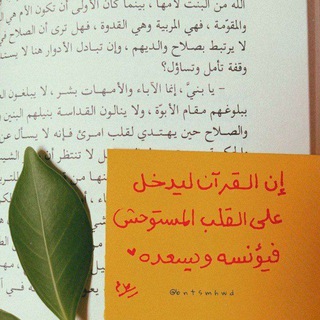 الله من البنت لأمها، بينما كان الأولى أن تكون الأم هي
والمقومة، فهي المربية وهي القدوة، فهل ترى أن الصلاح في
لا يرتبط بصلاح والديهم، وإن تبادل الأدوار هنا لا يستد
وقفة تأمل وتساؤل؟
- يا بنيَّ، إنما الآباء والأمهات بشر، لا يبلغون
ببلوغهم مقام الأبوّة، ولا ينالون القداسة بنيلهم البنين
والصلاح حين يهتدي لقلب امرئ فإنه لا يسأل عن
لا تنتظر
إن القرآن ليدخل
على القلب المستوحش
فيؤنسه ويسعده ♥
@bntsmhwd